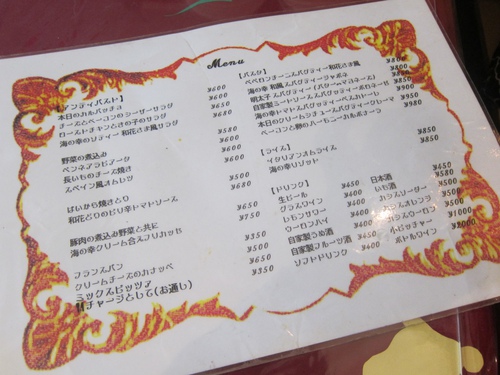 Menu
【アンティパスト】
本日のカルパッチョ ¥600
チーズとベーコンのシーザーサラダ ¥600
ローストチキンときの子のサラダ ¥650
海の幸のソティー 和花さま風サラダ ¥680
野菜の煮込み ¥600
ペンネアラビアータ ¥600
長いものチーズ焼き ¥500
スペイン風オムレツ ¥680
ばいから焼きとり ¥650
和花どりのピリ辛トマトソース ¥750
豚肉の煮込み野菜と共に
海の幸クリーム合えブリカッセ
フランスパン
クリームチーズのカナッペ
ミックスピッツア ¥650
チャージとして(お通し) ¥350
【パスタ】
ペペロンチーノスパゲティー和花さま風 ¥800
海の幸 和風スパゲティージャポネ ¥900
明太子スパゲティー
自家製ミートソース
海の幸トマトスパゲティーペスカトーレ
本日のクリームチーズスパゲティークリーマ
ベーコンと卵のハーモニーカルボナーラ ¥980
【ライス】
イタリアンオムライス ¥850
海の幸リゾット ¥850
【ドリンク】
生ビール ¥450
グラスワイン ¥400
レモンサワー ¥400
ウーロンハイ ¥400
自家製うめ酒
自家製フルーツ酒 ¥400
ソフトドリンク
日本酒 ¥650
いも酒
カシスソーダー
カシスオレンジ ¥500
カシスウーロン ¥500
小ピッチャー ¥1000
ボトルワイン ¥2000